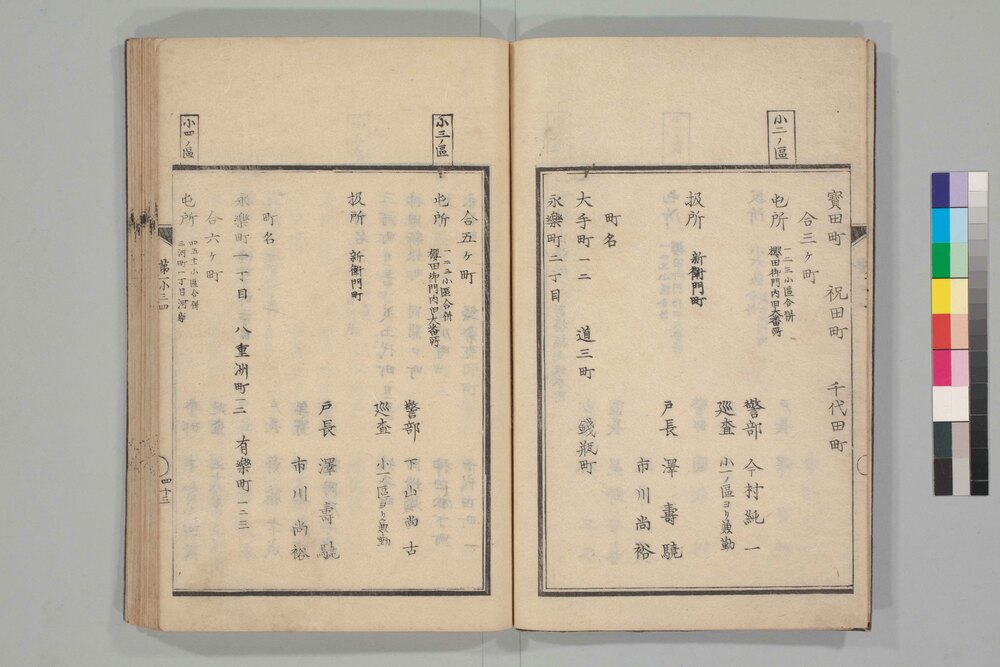 寳田町 祝田町 千代田町
合三ヶ町
小二ノ區
屯所 一二三小區合併
櫻田御門内旧大番所
警部 今村純一
巡査 小一ノ區ヨリ兼勤
扱所 新衛門町
戸長 澤壽驍
市川尚裕
町名
大手町一二 道三町 錢瓶町
永樂町二丁目
合五ヶ町
小三ノ區
屯所 一二三小區合併
櫻田御門内旧大番所
警部 下山尚古
巡査 小一ノ區ヨリ兼勤
扱所 新衛門町
戸長 澤壽驍
市川尚裕
町名
永樂町一丁目 八重洲町一二 有樂町一二三
合六ヶ町
小四ノ區
屯所 四五十小區合併
三河町一丁目河岸
第小三四
四十三